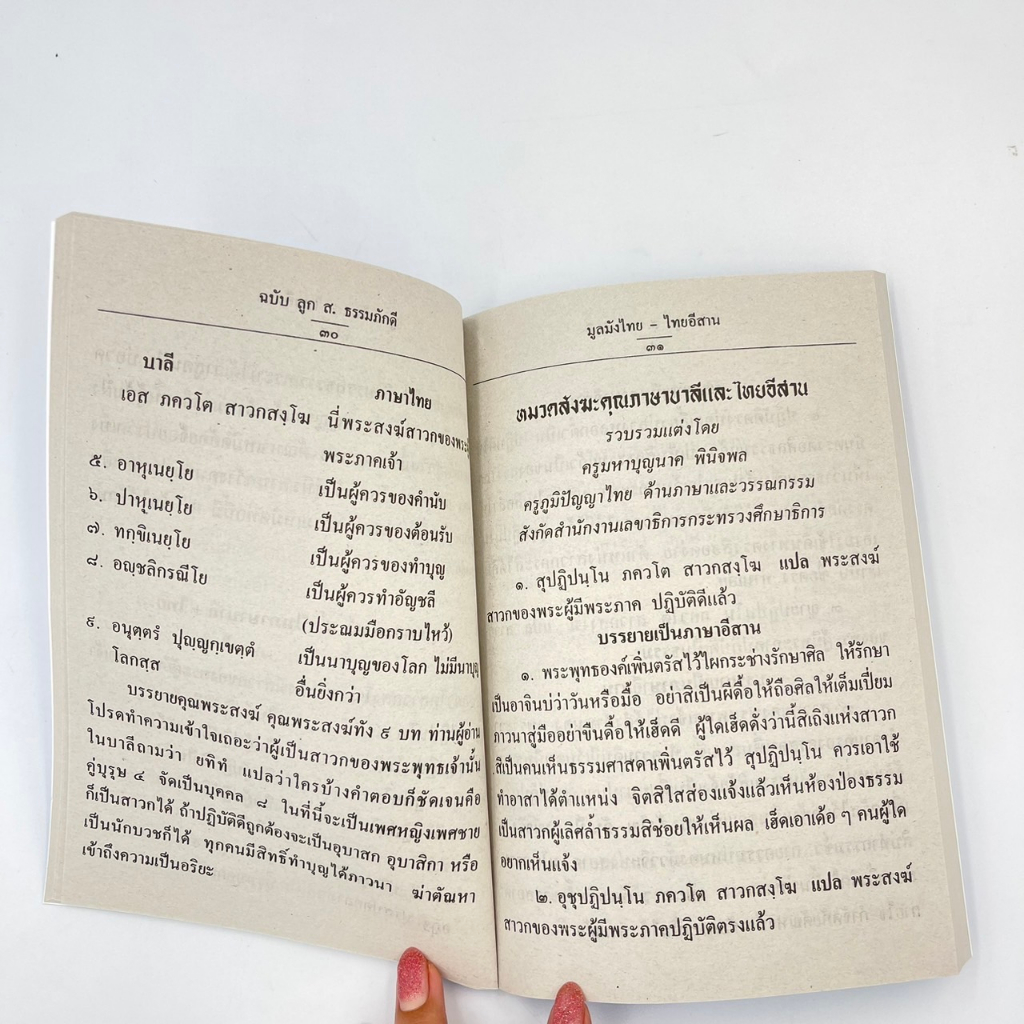 ฉบับ ลูก ส. ธรรมภักดี
๓๐
บาลี ภาษาไทย
เอส ภควโต สาวกสงฺโฆ นี่พระสงฆ์สาวกของพระ
พระภาคเจ้า
๕. อาหุเนยฺโย เป็นผู้ควรของคำนับ
๖. ปาหุเนยฺโย เป็นผู้ควรของต้อนรับ
๗. ทกฺขิเนยฺโย เป็นผู้ควรของทำบุญ
๘. อญฺชลิกรณีโย เป็นผู้ควรทำอัญชลี
(ประณมมือกราบไหว้)
๙. อนุตฺตรํ ปุญฺญกฺเขตฺตํ เป็นนาบุญของโลก ไม่มีนาบุญ
โลกสฺส อื่นยิ่งกว่า
บรรยายคุณพระสงฆ์ คุณพระสงฆ์ทั้ง ๙ บท ท่านผู้อ่าน
โปรดทำความเข้าใจเถอะว่าผู้เป็นสาวกของพระพุทธเจ้านั้น
ในบาลีถามว่า ยทิทํ แปลว่าใครบ้างคำตอบก็ชัดเจนคือ
คู่บุรุษ ๔ จัดเป็นบุคคล ๘ ในที่นี้จะเป็นเพศหญิงเพศชาย
ก็เป็นสาวกได้ ถ้าปฏิบัติดีถูกต้องจะเป็นอุบาสก อุบาสิกา หรือ
เป็นนักบวชก็ได้ ทุกคนมีสิทธิ์ทำบุญได้ภาวนา ฆ่าตัณหา
เข้าถึงความเป็นอริยะ
มูลมังไทย - ไทยอีสาน
๓๑
หมวดสังฆะคุณภาษาบาลีและไทยอีสาน
รวบรวมแต่งโดย
ครูมหาบุญนาค พินิจพล
ครูภูมิปัญญาไทย ด้านภาษาและวรรณกรรม
สังกัดสำนักงานเลขาธิการกระทรวงศึกษาธิการ
๑. สุปฏิปนฺโน ภควโต สาวกสงฺโฆ แปล พระสงฆ์
สาวกของพระผู้มีพระภาค ปฏิบัติดีแล้ว
บรรยายเป็นภาษาอีสาน
๑. พระพุทธองค์เพิ่นตรัสไว้ไผกระช่างรักษาศิล ให้รักษา
เป็นอาจินบ่ว่าวันหรือมื้อ อย่าสิเป็นผีดื้อให้ถือศิลให้เต็มเปี่ยม
ภาวนาสู่มืออย่าขืนดื้อให้เฮ็ดดี ผู้ใดเฮ็ดดั่งว่านี้สิเถิงแห่งสาวก
สิเป็นคนเห็นธรรมศาสดาเพิ่นตรัสไว้ สุปฏิปนฺโน ควรเอาใช้
ทำอาสาได้ตำแหน่ง จิตสิใสส่องแจ้งแล้วเห็นห้องป่องธรรม
เป็นสาวกผู้เลิศล้ำธรรมสิช่อยให้เห็นผล เฮ็ดเอาเด้อ ๆ คนผู้ใด
อยากเห็นแจ้ง
๒. อุชุปฏิปนฺโน ภควโต สาวกสงฺโฆ แปล พระสงฆ์
สาวกของพระผู้มีพระภาคปฏิบัติตรงแล้ว